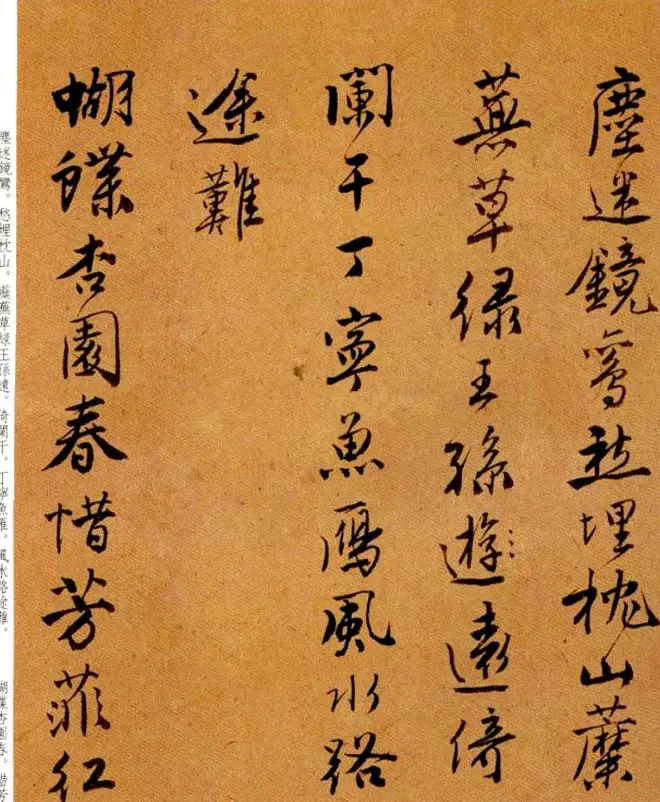 塵迷鏡鸞愁埋枕山蘼
蕪草緑王孫遊遠倚
闌干丁寧魚鴈風水路
途難
蝴蝶杏園春惜芳菲紅
塵迷鏡鸞。愁埋枕山。蘼蕪草綠王孫遠。倚闌干。丁寧魚雁。風水路途難。
胡蝶杏園春。惜芳